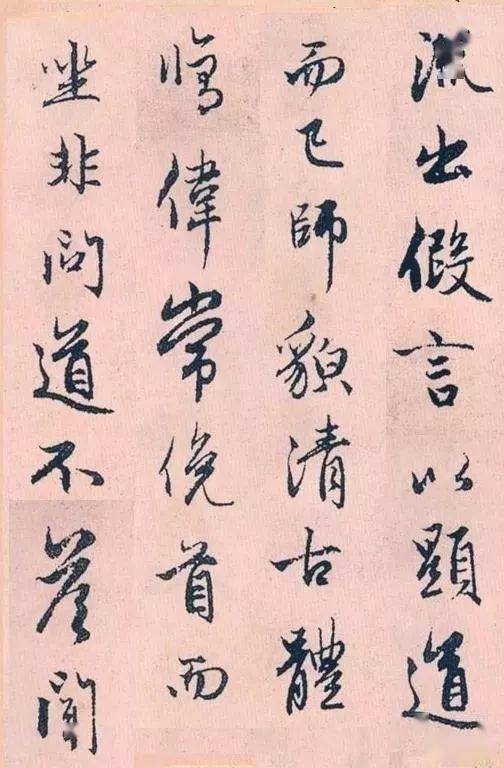 流出假言以顯道
而已師貌清古體
偉常俛首而
坐非問道不答聞